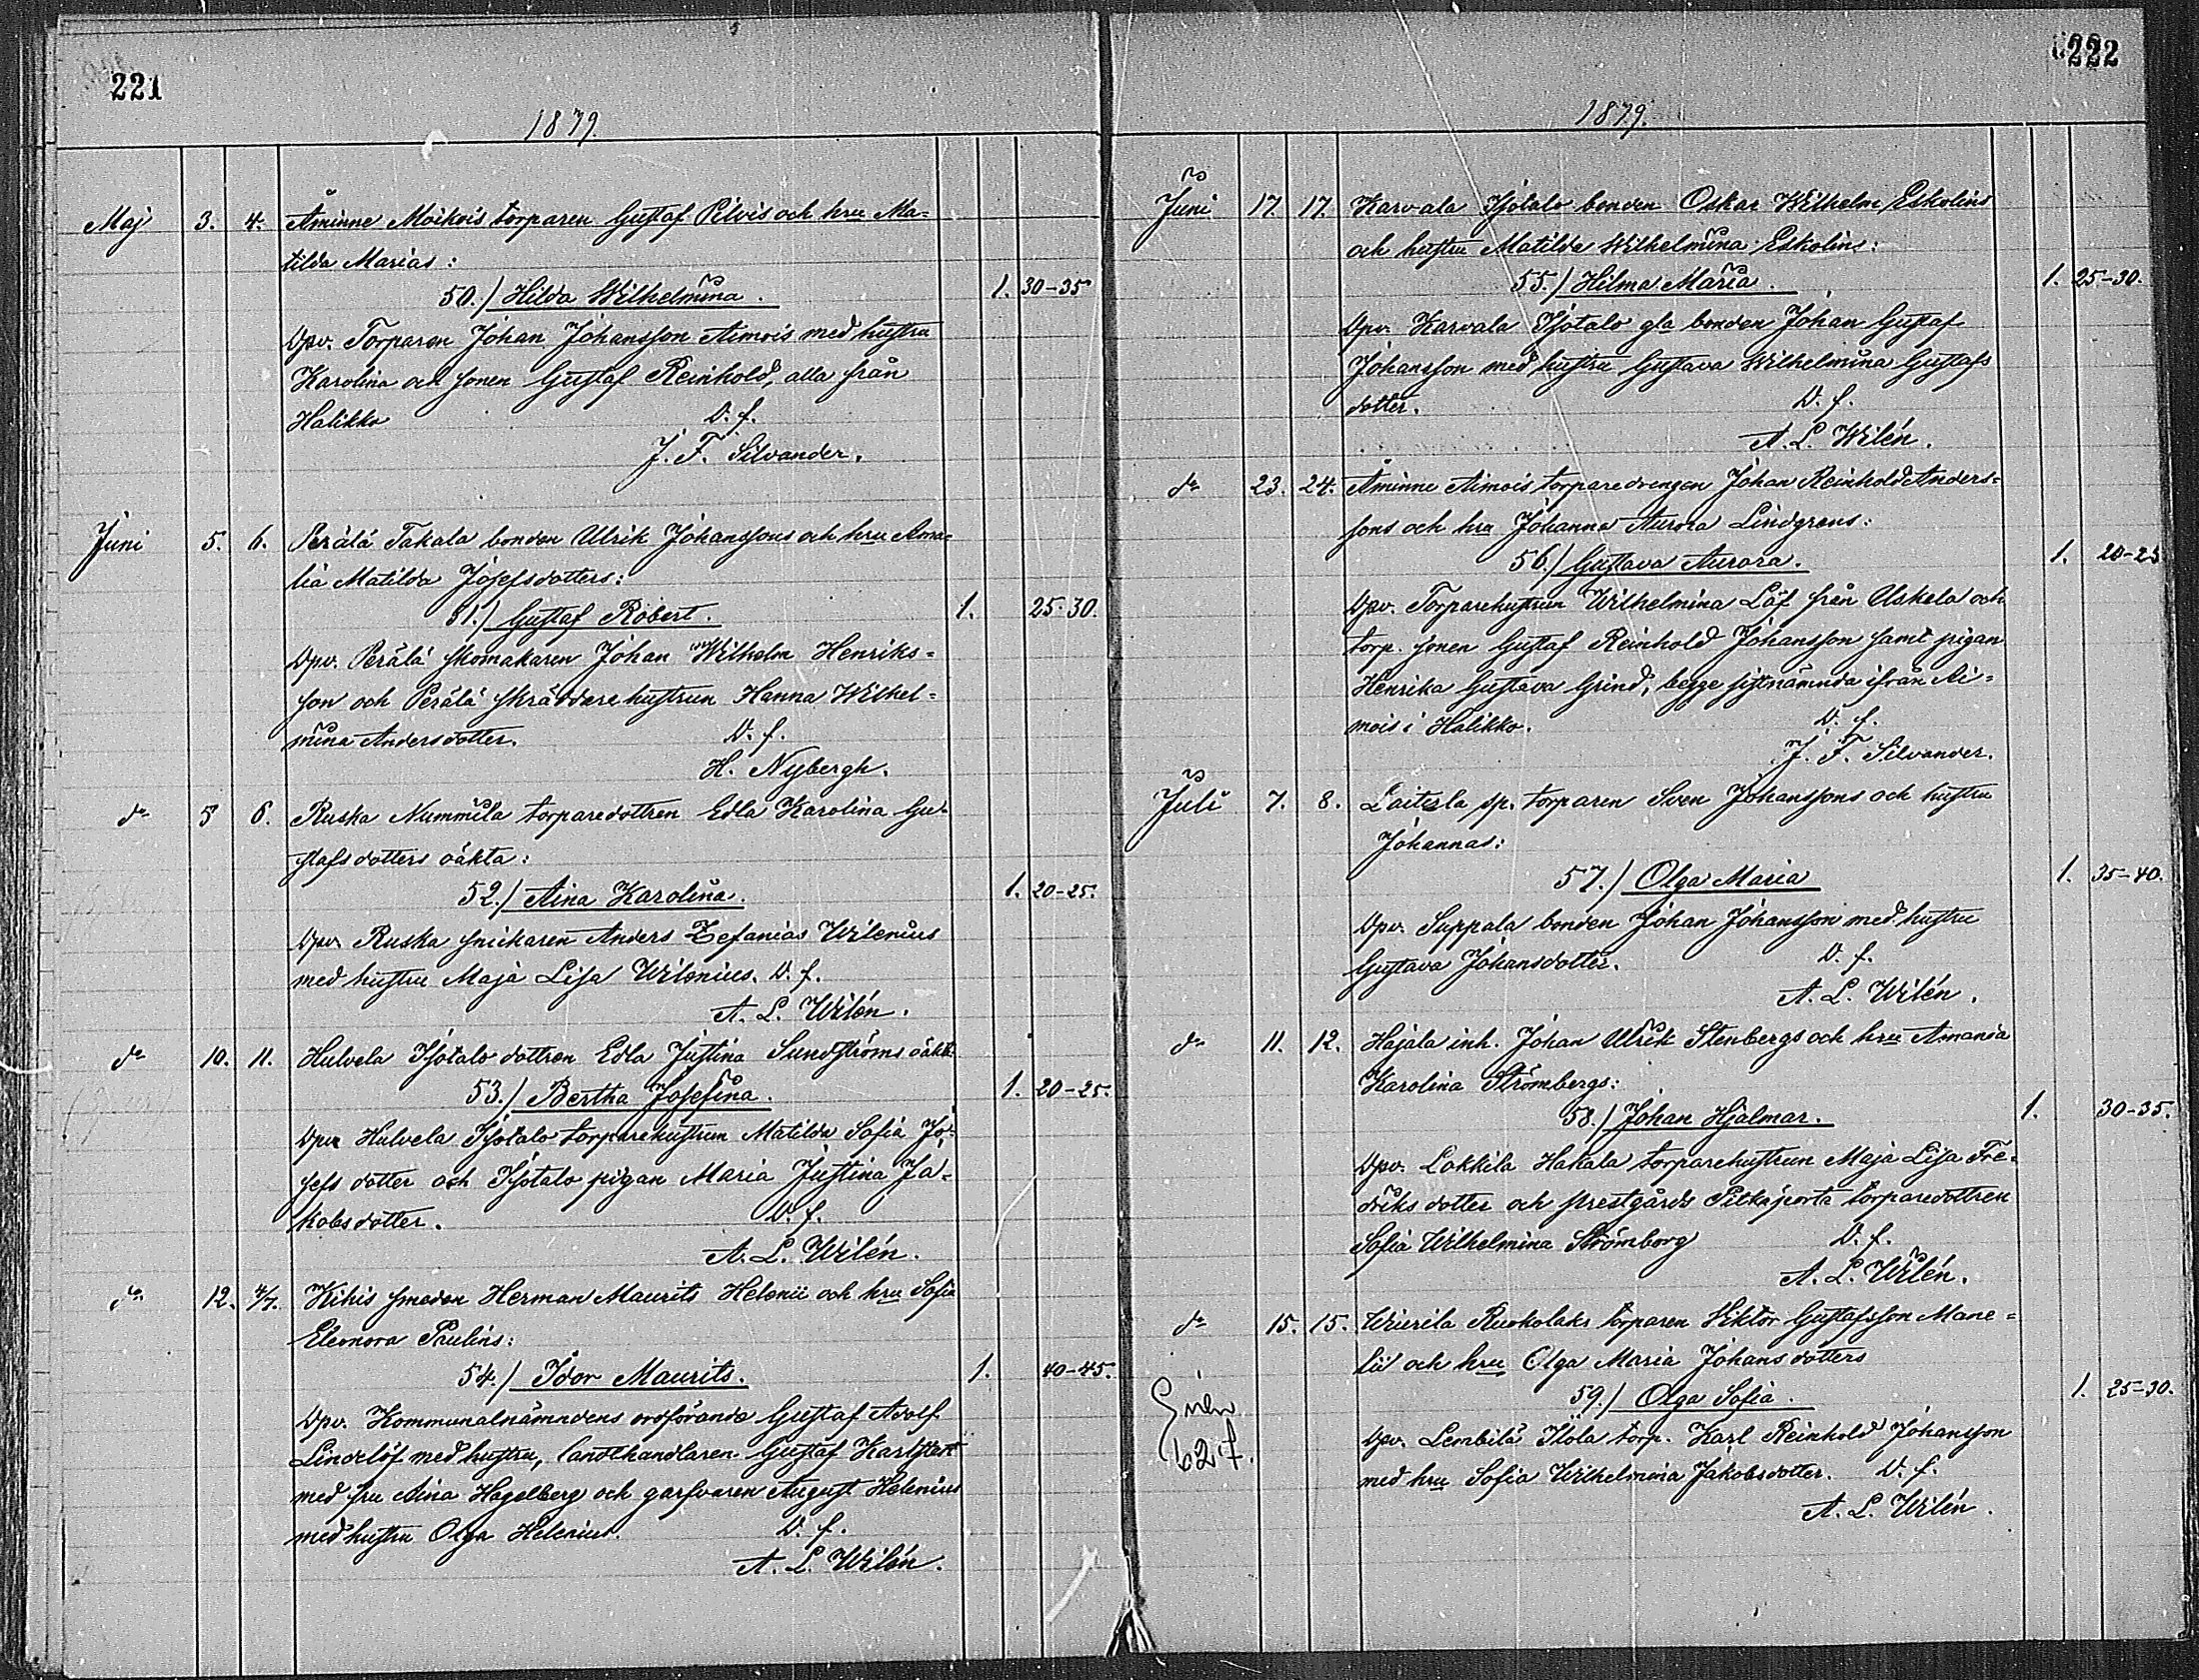 221
1879.
Maj 3. 4. Åminne Moikois torparen Gustaf Pilvis och hru Ma-
tilda Marias:
50./ Hilda Wilhelmina. 1. 30-35
Dpv. Torparen Johan Johansson Aimois med hustru
Karolina och sonen Gustaf Reinhold, alla från
Halikko D. f.
J. F. Silvander.
Juni 5. 6. Perälä Takala bonden Ulrik Johanssons och hru Ama-
lia Matilda Josefsdotters:
51./ Gustaf Robert. 1. 25-30.
Dpv. Perälä skomakaren Johan Wilhelm Henriks-
son och Perälä skräddarehustrun Hanna Wilhel-
mina Andersdotter. D. f.
H. Nybergh.
do 5 6. Ruska Nummila torparedottren Edla Karolina Gu-
stafsdotters oäkta:
52./ Aina Karolina. 1. 20-25.
Dpv Ruska snickaren Anders Zefanias Wilenius
med hustru Maja Lisa Wilenius. D. f.
A. L. Wilén.
do 10. 11. Hulvela Isotalo dottren Edla Justina Sundströms oäkta
53./ Bertha Josefina. 1. 20-25.
Dpv Hulvela Isotalo torparehustrun Matilda Sofia Jo-
sefs dotter och Isotalo pigan Maria Justina Ja-
kobsdotter. D. f.
A. L. Wilén.
do 12. 4/7. Kihis smeden Herman Maurits Helenii och hru Sofia
Eleonora Paulins:
54./ Idor Maurits. 1. 40-45.
Dpv. Kommunalnämndens ordförande Gustaf Adolf
Lindelöf med hustru, landthandlaren Gustaf Karlstedt
med fru Aina Hagelberg och garfvaren August Helenius
med hustru Olga Helenius. D. f.
A. L. Wilén.
222
1879.
Juni 17. 17. Karvala Isotalo bonden Oskar Wilhelm Eskolins
och hustru Matilda Wilhelmina Eskolins:
55./ Hilma Maria. 1. 25-30.
Dpv. Karvala Isotalo gla bonden Johan Gustaf
Johansson med hustru Gustava Wilhelmina Gustafs
dotter. D. f.
A. L. Wilén.
do 23. 24. Åminne Aimois torparedrengen Johan Reinhold Anders-
sons och hru Johanna Aurora Lindgrens:
56./ Gustava Aurora. 1. 20-25
Dpv. Torparehustrun Wilhelmina Löf från Uskela och
torp. sonen Gustaf Reinhold Johansson samt pigan
Henrika Gustava Grind, begge sistnämnda ifrån Ai-
mois i Halikko. D. f.
J. F. Silvander.
Juli 7. 8. Laitila sp. torparen Sven Johanssons och hustru
Johannas:
57./ Olga Maria 1. 35-40.
Dpv. Suppala bonden Johan Johansson med hustru
Gustava Johansdotter. D. f.
A. L. Wilén.
do 11. 12. Hajala inh. Johan Ulrik Stenbergs och hru Amanda
Karolina Strömbergs:
58./ Johan Hjalmar. 1. 30-35.
Dpv. Lokkila Hakala torparehustrun Maja Lisa Fre-
driks dotter och prestgårds Pitkäporta torparedottren
Sofia Wilhelmina Strömberg D. f.
A. L. Wilén.
do 15. 15. Wiurila Ruokolaks torparen Viktor Gustafsson Mane-
lii och hru Olga Maria Johans dotters
59./ Olga Sofia. 1. 25-30.
62 f.
Dpv. Lembilä Isola torp. Karl Reinhold Johansson
med hru Sofia Wilhelmina Jakobsdotter. D. f.
A. L. Wilén.